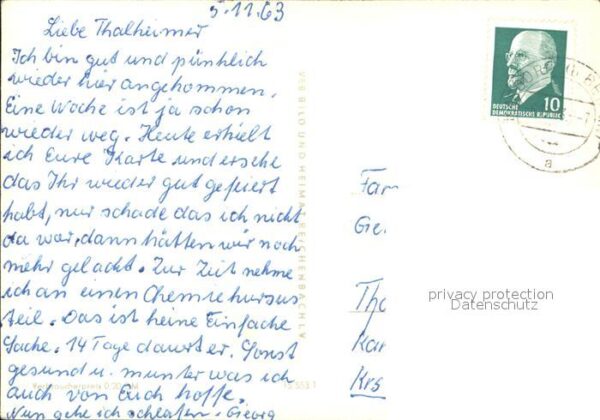 5.11.63
Liebe Thalheimer
Ich bin gut und pünktlich
wieder hier angekommen.
Eine Woche ist ja schon
wieder weg. Heute erhielt
ich Eure Karte und ersehe
das Ihr wieder gut gefeiert
habt, nur schade das ich nicht
da war, dann hätten wir noch
mehr gelacht. Zur Zeit nehme
ich an einen Chemiekursus
teil. Das ist keine Einfache
Sache. 14 Tage dauert er. Sonst
gesund u. munter was ich
auch von Euch hoffe.
Nun gehe ich schlafen. Georg
VEB BILD UND HEIMAT REICHENBACH I. V.
Verbraucherpreis 0,20
10
DEUTSCHE
DEMOKRATISCHE REPUBLIK
a
Fam
Ge.
Tha
Kar
Krs
privacy protection
Datenschutz